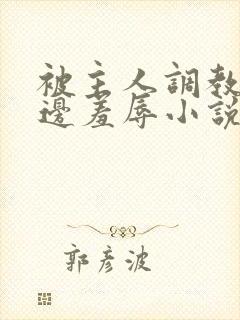 被主人調教
邊羞辱小說
郭彥波